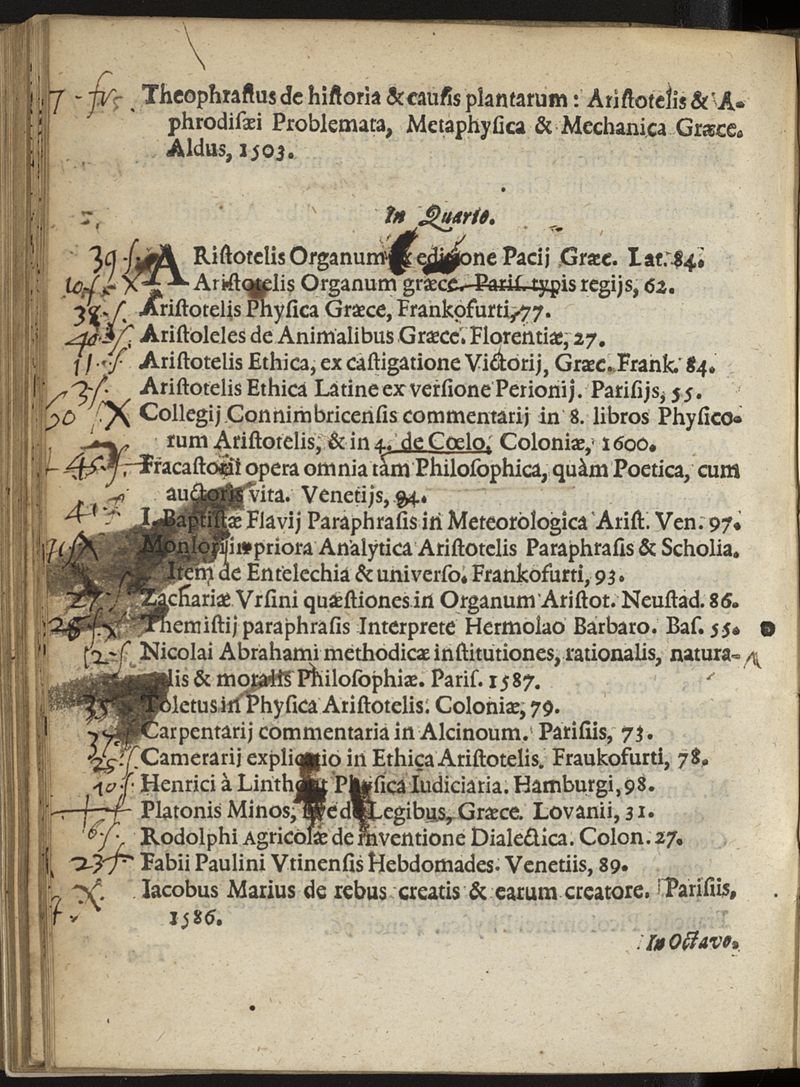 7 - Theophraſtus de hiſtoria & cauſis plantarum: Ariſtotelis & A-
phrodiſæi Problemata, Metaphyſica & Mechanica Græce.
Aldus, 1503.
In Quarto.
39 ARiſtotelis Organum editione Pacij Græc. Lat. 84.
10 X Ariſtotelis Organum græce. Pariſ. typis regijs, 62.
38 Ariſtotelis Phyſica Græce, Frankofurti, 77.
Ariſtoleles de Animalibus Græce. Florentiæ, 27.
11 Ariſtotelis Ethica, ex caſtigatione Victorij, Græc. Frank. 84.
3 Ariſtotelis Ethica Latine ex verſione Perionij. Pariſijs, 55.
X Collegij Connimbricenſis commentarij in 8. libros Phyſico-
rum Ariſtotelis, & in 4. de Cœlo. Coloniæ, 1600.
45 Fracaſtorii opera omnia tàm Philoſophica, quàm Poetica, cum
auctoris vita. Venetijs, 94.
I. Baptiſtæ Flavij Paraphraſis in Meteorologica Ariſt. Ven. 97.
X Monlorij in priora Analytica Ariſtotelis Paraphraſis & Scholia.
Item de Entelechia & univerſo. Frankofurti, 93.
27 Zachariæ Vrſini quæſtiones in Organum Ariſtot. Neuſtad. 86.
Themiſtij paraphraſis Interprete Hermolao Barbaro. Baſ. 55.
12 Nicolai Abrahami methodicæ inſtitutiones, rationalis, natura-
lis & moralis Philoſophiæ. Pariſ. 1587.
35 Toletus in Phyſica Ariſtotelis. Coloniæ, 79.
37 Carpentarij commentaria in Alcinoum. Pariſiis, 73.
25 Camerarij explicatio in Ethica Ariſtotelis. Fraukofurti, 78.
10 Henrici à Linthout Phyſica Iudiciaria. Hamburgi, 98.
Platonis Minos, Legibus, Græce. Lovanii, 31.
6 Rodolphi Agricolæ de inventione Dialectica. Colon. 27.
23 Fabii Paulini Vtinenſis Hebdomades. Venetiis, 89.
X Iacobus Marius de rebus creatis & earum creatore. Pariſiis,
1586.
In Octavo.